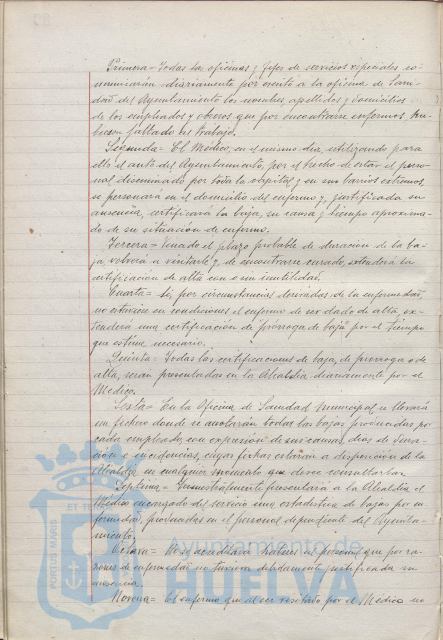 Primera = Todas las oficinas y Jefes de servicios especiales co-
municarán diariamente por escrito a la oficina de Sani-
dad del Ayuntamiento los nombres, apellidos y domicilios
de los empleados y obreros que por encontrarse enfermos hu-
biesen faltado al trabajo.
Segunda = El Médico, en el mismo día, utilizando para
ello el auto del Ayuntamiento, por el hecho de estar el perso-
nal diseminado por toda la capital y en sus barrios extremos,
se personará en el domicilio del enfermo y, justificada su
ausencia, certificará la baja, su causa y tiempo aproxima-
do de su situación de enfermo.
Tercera = Venido el plazo probable de duración de la ba-
ja, volverá a visitarle y, de encontrarse curado, extenderá la
certificación de alta con o sin inutilidad.
Cuarta = Si por circunstancias derivadas de la enfermedad,
no estuviese en condiciones el enfermo de ser dado de alta, ex-
tenderá una certificación de prórroga de baja por el tiempo
que estime necesario.
Quinta = Todas las certificaciones de baja, de prórroga o de
alta, serán presentadas en la Alcaldía diariamente por el
Médico.
Sexta = En la Oficina de Sanidad Municipal se llevará
un fichero donde se anotarán todas las bajas producidas por
cada empleado, con expresión de sus causas, días de dura-
ción e incidencias, cuyas fichas estarán a disposición de la
Alcaldía en cualquier momento que desee consultarlas.
Séptima = Trimestralmente presentará a la Alcaldía el
Médico encargado del servicio una estadística de bajas por en-
fermedad, producidas en el personal dependiente del Ayunta-
miento.
Octava = No se acreditará haberes al personal que por ra-
zones de enfermedad no tuviera debidamente justificada su
ausencia.
Novena = El enfermo que al ser visitado por el Médico no
PORTUS MARIS
ET TE
Ayuntamiento de
HUELVA